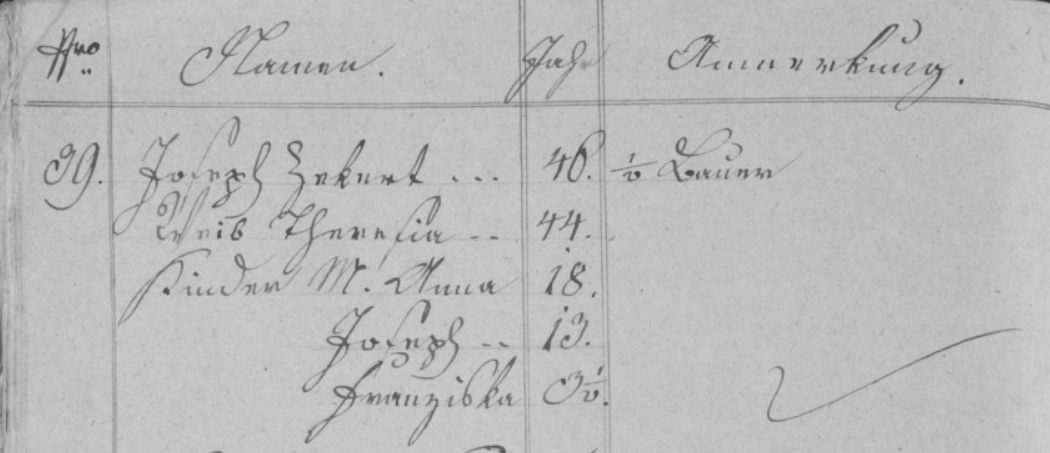 Nro Namen. Jahr Anmerkung.
39. Joseph Zekert ... 46. ½ Bauer
Weib Theresia .. 44.
Kinder M. Anna 18.
Joseph .. 13.
Franziska 3½.